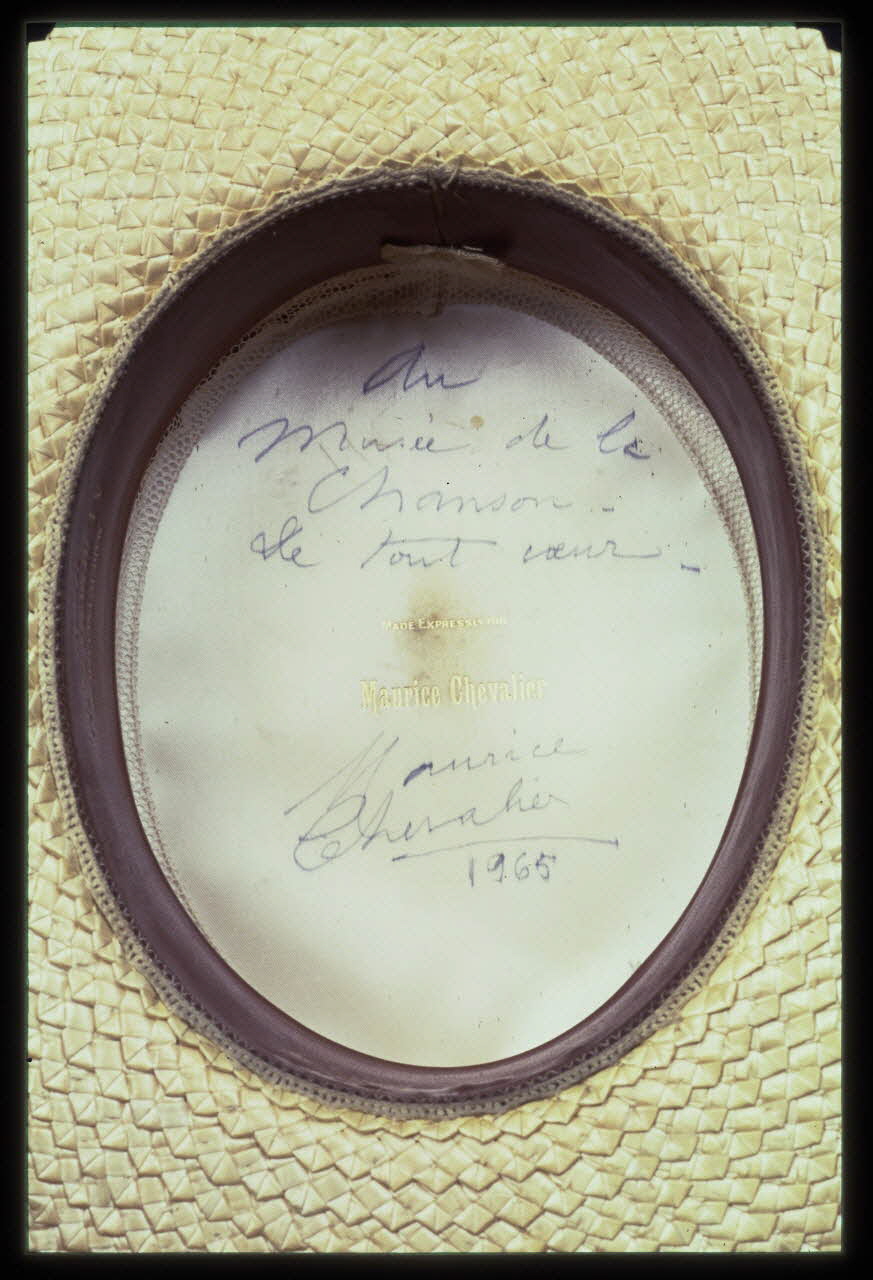 Au
Musée de la
Chanson -
De tout cœur -
MADE EXPRESSLY FOR
Maurice Chevalier
Maurice
Chevalier
1965